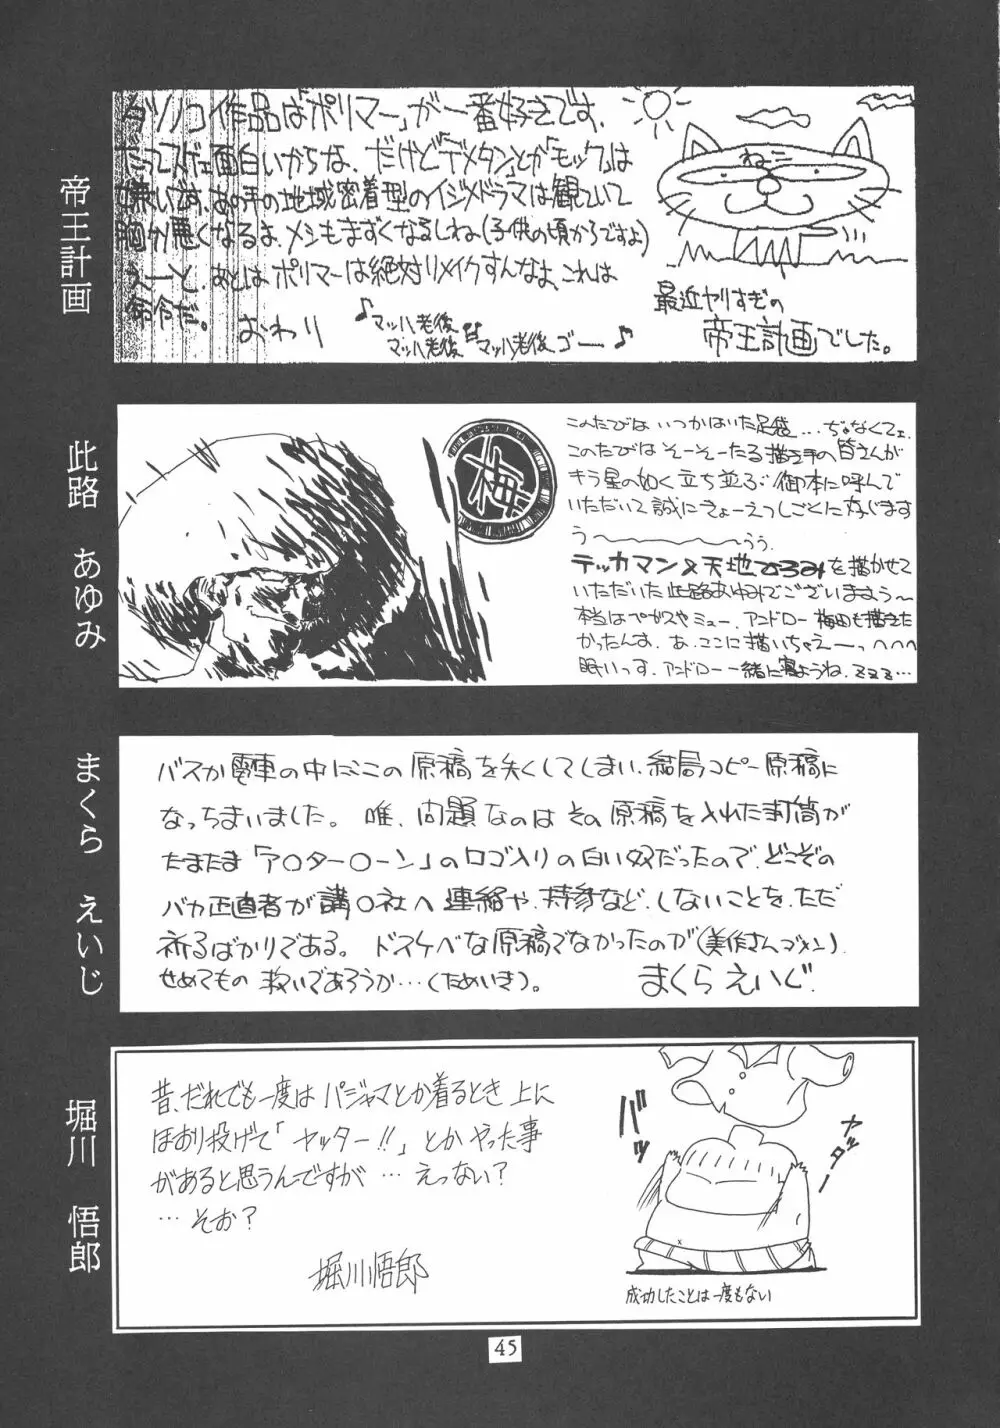 帝王計画
タツノコ作品は「ポリマー」が一番好きです、
だってスゲェ面白いからな、だけど「デメタン」とか「モック」は
嫌いです、あの手の地域密着型のイジメドラマは観ていて
胸が悪くなるよ、メシもまずくなるしね(子供の頃からですよ)
えーと、あとはポリマーは絶対リメイクすんなよ、これは
命令だ。
おわり
♪マッハ老後
マッハ老後
マッハ老後 ゴー ♪
ねこ
最近ヤリすぎの
帝王計画でした。
此路 あゆみ
梅
このたびは いつかはいた足袋…ぢゃなくてェ
このたびは そーそーたる描き手の皆さんが
キラ星の如く立ち並ぶ 御本に呼んで
いただいて誠にきょーえつしごくに存じます
う〜〜〜〜〜〜〜うう
テッカマン×天地ひろみを描かせて
いただいた 此路あゆみでございますう〜
本当はペガスやミュー、アンドロー梅田も描きた
かったんす。あ、ここに描いちゃえーっヘヘヘ
眠いっす。アンドロー一緒に寝ようね、ZZZ…
まくら えいじ
バスか電車の中に、この原稿を失くしてしまい、結局コピー原稿に
なっちまいました。唯、問題なのはその原稿を入れた封筒が
たまたま「ア○ター○ーン」のロゴ入りの白い奴だったので、どこぞの
バカ正直者が講○社へ連絡や、持参など、しないことを、ただ
祈るばかりである。ドスケベな原稿でなかったのが(美作さんゴメン)
せめてもの救いであろうか…(ためいき)。
まくらえいじ
堀川 悟郎
昔、だれでも一度はパジャマとか着るとき上に
ほおり投げて「ヤッター!!」とかやった事
があると思うんですが…えっない?
…そお?
堀川悟郎
バッ
ヤッター
成功したことは一度もない
45